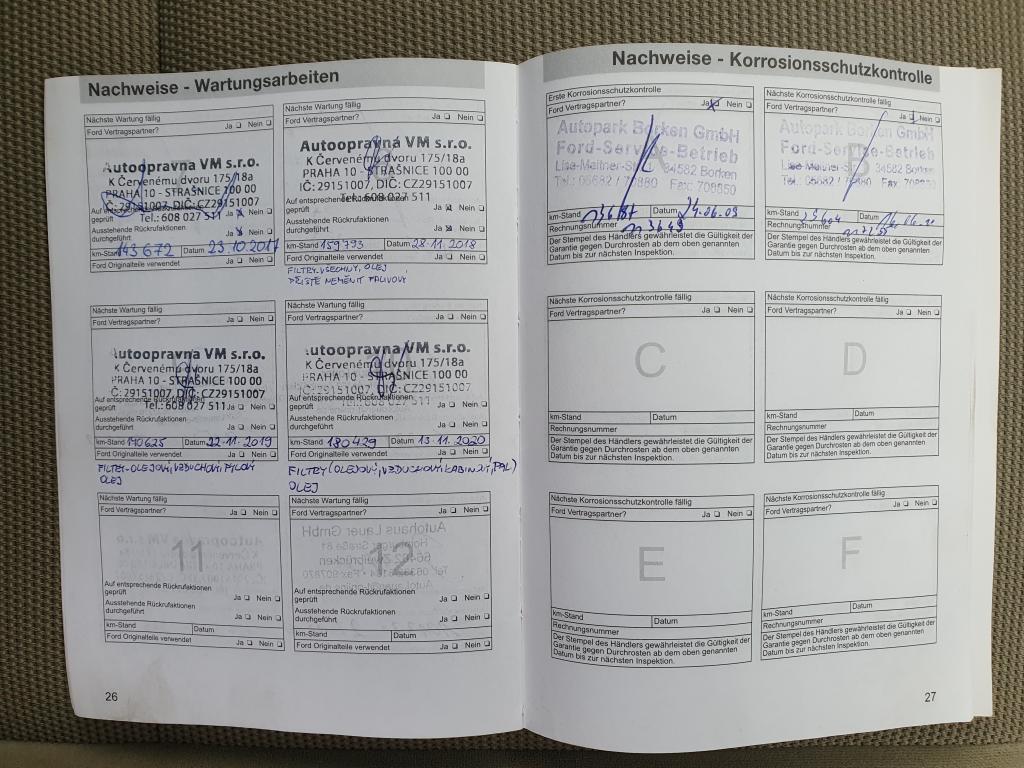 Nachweise - Wartungsarbeiten
Nächste Wartung fällig
Ford Vertragspartner? Ja Nein
Autoopravna VM s.r.o.
K Červenému dvoru 175/18a
PRAHA 10 - STRAŠNICE 100 00
IČ: 29151007, DIČ: CZ29151007
Tel.: 608 027 511
Auf entsprechende Rückrufaktionen
geprüft Ja Nein
Ausstehende Rückrufaktionen
durchgeführt Ja Nein
km-Stand 143 672 Datum 23.10.2017
Ford Originalteile verwendet Ja Nein
Nächste Wartung fällig
Ford Vertragspartner? Ja Nein
Autoopravna VM s.r.o.
K Červenému dvoru 175/18a
PRAHA 10 - STRAŠNICE 100 00
IČ: 29151007, DIČ: CZ29151007
Tel.: 608 027 511
Auf entsprechende Rückrufaktionen
geprüft Ja Nein
Ausstehende Rückrufaktionen
durchgeführt Ja Nein
km-Stand 159 793 Datum 28.11.2018
Ford Originalteile verwendet Ja Nein
FILTRY VŠECHNY, OLEJ
PŘÍŠTĚ NEMĚNIT PALIVOVÝ
Nächste Wartung fällig
Ford Vertragspartner? Ja Nein
Autoopravna VM s.r.o.
K Červenému dvoru 175/18a
PRAHA 10 - STRAŠNICE 100 00
Č: 29151007, DIČ: CZ29151007
Tel.: 608 027 511
Auf entsprechende Rückrufaktionen
geprüft Ja Nein
Ausstehende Rückrufaktionen
durchgeführt Ja Nein
km-Stand Datum 22.11.2019
Ford Originalteile verwendet Ja Nein
FILTRY-OLEJOVÝ, VZDUCHOVÝ, PYLOVÝ
OLEJ
Nächste Wartung fällig
Ford Vertragspartner? Ja Nein
Autoopravna VM s.r.o.
K Červenému dvoru 175/18a
PRAHA 10 - STRAŠNICE 100 00
IČ: 29151007, DIČ: CZ29151007
Tel.: 608 027 511
Auf entsprechende Rückrufaktionen
geprüft Ja Nein
Ausstehende Rückrufaktionen
durchgeführt Ja Nein
km-Stand 180 429 Datum 13.11.2020
Ford Originalteile verwendet Ja Nein
FILTRY (OLEJOVÝ, VZDUCHOVÝ, KABINOVÝ, PAL)
OLEJ
Nächste Wartung fällig
Ford Vertragspartner? Ja Nein
11
Auf entsprechende Rückrufaktionen
geprüft Ja Nein
Ausstehende Rückrufaktionen
durchgeführt Ja Nein
km-Stand Datum
Ford Originalteile verwendet Ja Nein
Nächste Wartung fällig
Ford Vertragspartner? Ja Nein
12
Auf entsprechende Rückrufaktionen
geprüft Ja Nein
Ausstehende Rückrufaktionen
durchgeführt Ja Nein
km-Stand Datum
Ford Originalteile verwendet Ja Nein
26
Nachweise - Korrosionsschutzkontrolle
Erste Korrosionsschutzkontrolle
Ford Vertragspartner? Ja Nein
A
Autopark Borken GmbH
Ford-Service-Betrieb
Lise-Meitner-Str. 34582 Borken
Tel.: 05682 / 70880 Fax: 709850
km-Stand Datum 24.06.09
Rechnungsnummer
Der Stempel des Händlers gewährleistet die Gültigkeit der
Garantie gegen Durchrosten ab dem oben genannten
Datum bis zur nächsten Inspektion.
Nächste Korrosionsschutzkontrolle fällig
Ford Vertragspartner? Ja Nein
B
Autopark Borken GmbH
Ford-Service-Betrieb
Lise-Meitner-Str. 34582 Borken
Tel.: 05682 / 70880 Fax: 709850
km-Stand Datum
Rechnungsnummer
Der Stempel des Händlers gewährleistet die Gültigkeit der
Garantie gegen Durchrosten ab dem oben genannten
Datum bis zur nächsten Inspektion.
Nächste Korrosionsschutzkontrolle fällig
Ford Vertragspartner? Ja Nein
C
km-Stand Datum
Rechnungsnummer
Der Stempel des Händlers gewährleistet die Gültigkeit der
Garantie gegen Durchrosten ab dem oben genannten
Datum bis zur nächsten Inspektion.
Nächste Korrosionsschutzkontrolle fällig
Ford Vertragspartner? Ja Nein
D
km-Stand Datum
Rechnungsnummer
Der Stempel des Händlers gewährleistet die Gültigkeit der
Garantie gegen Durchrosten ab dem oben genannten
Datum bis zur nächsten Inspektion.
Nächste Korrosionsschutzkontrolle fällig
Ford Vertragspartner? Ja Nein
E
km-Stand Datum
Rechnungsnummer
Der Stempel des Händlers gewährleistet die Gültigkeit der
Garantie gegen Durchrosten ab dem oben genannten
Datum bis zur nächsten Inspektion.
Nächste Korrosionsschutzkontrolle fällig
Ford Vertragspartner? Ja Nein
F
km-Stand Datum
Rechnungsnummer
Der Stempel des Händlers gewährleistet die Gültigkeit der
Garantie gegen Durchrosten ab dem oben genannten
Datum bis zur nächsten Inspektion.
27